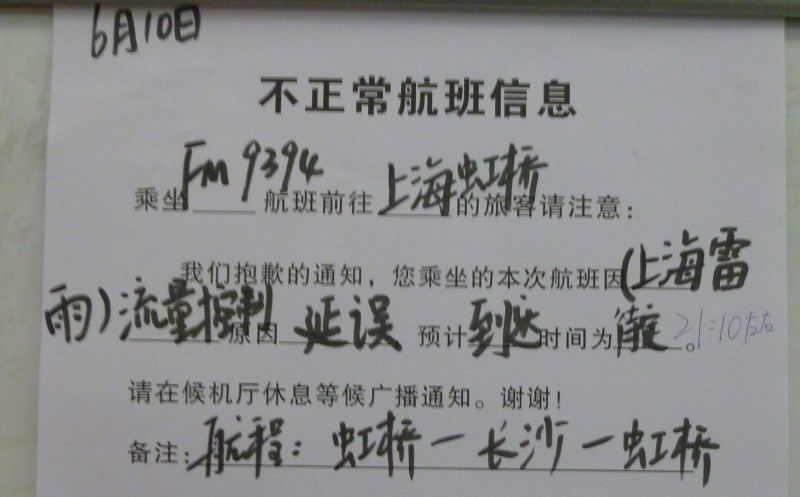 6月10日
不正常航班信息
乘坐 Fm 9394 航班前往 上海虹桥 的旅客请注意:
我们抱歉的通知, 您乘坐的本次航班因(上海雷
雨)流量控制 原因 延误, 预计 到达 时间为 待定 21:10左右。
请在候机厅休息等候广播通知。谢谢!
备注: 航程: 虹桥一长沙一虹桥